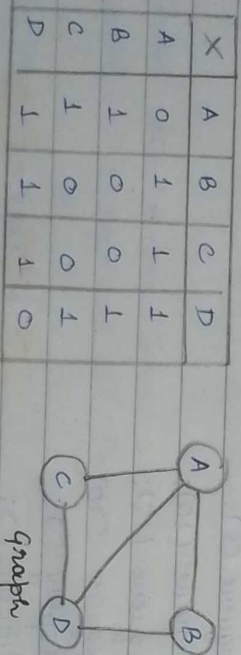 X A B C D
A 0 1 1 1
B 1 0 0 1
C 1 0 0 1
D 1 1 1 0
A B
C D
Graph